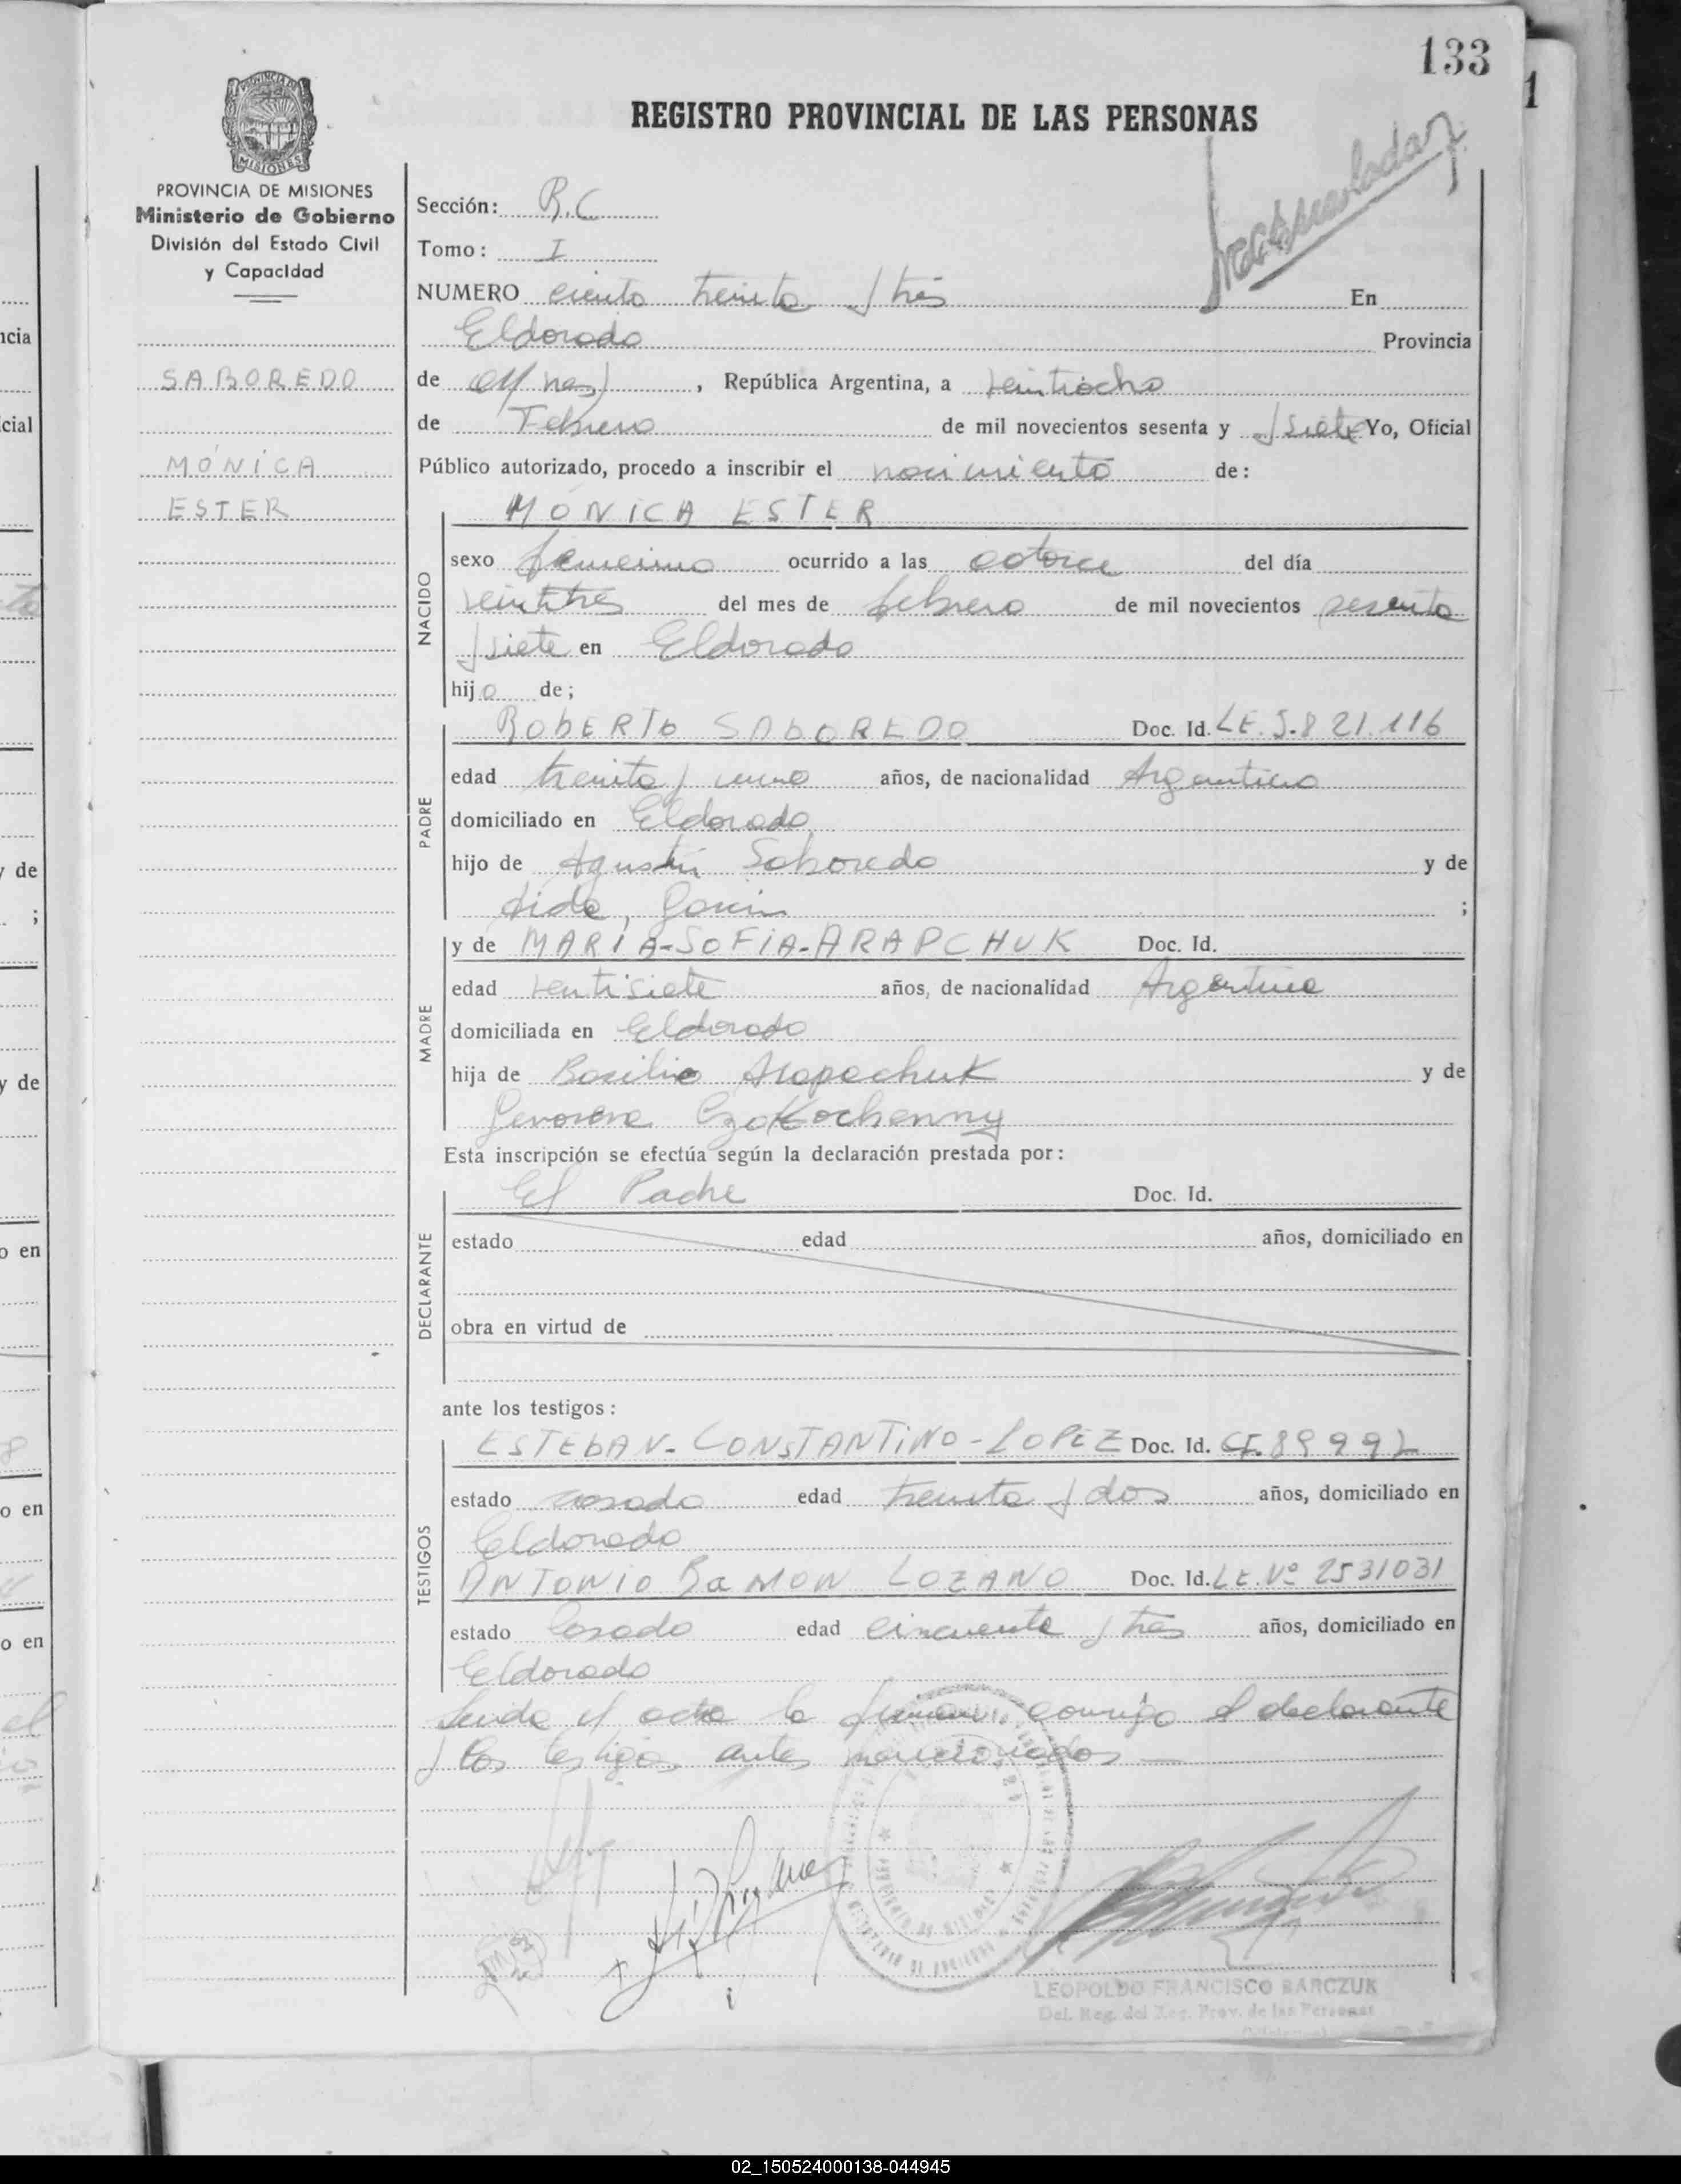 133
REGISTRO PROVINCIAL DE LAS PERSONAS
Matriculada
PROVINCIA DE MISIONES
Ministerio de Gobierno
División del Estado Civil
y Capacidad
SABOREDO
MÓNICA
ESTER
Sección: R.C
Tomo: I
NUMERO ciento treinta y tres En
Eldorado Provincia
de Mnes, República Argentina, a veintiocho
de Febrero de mil novecientos sesenta y y siete Yo, Oficial
Público autorizado, procedo a inscribir el nacimiento de:
NACIDO
MÓNICA ESTER
sexo femenino ocurrido a las catorce del día
veintitres del mes de febrero de mil novecientos sesenta
y siete en Eldorado
hija de;
PADRE
ROBERTO SABOREDO Doc. Id. LE. 5.821.116
edad treinta y uno años, de nacionalidad Argentino
domiciliado en Eldorado
hijo de Agustín Saboredo y de
;
MADRE
y de MARIA-SOFIA-ARAPCHUK Doc. Id.
edad ventisiete años, de nacionalidad Argentina
domiciliada en Eldorado
hija de Basilio Arapachuk y de
Esta inscripción se efectúa según la declaración prestada por:
DECLARANTE
El Padre Doc. Id.
estado edad años, domiciliado en
obra en virtud de
ante los testigos:
TESTIGOS
ESTEBAN-CONSTANTINO-LOPEZ Doc. Id.
estado casado edad treinta y dos años, domiciliado en
Eldorado
ANTONIO RAMON LOZANO Doc. Id. LE. Nº 2531031
estado Casado edad cincuenta y tres años, domiciliado en
Eldorado
Leida el acta la firman conmigo el declarante
y los testigos antes mencionados
LEOPOLDO FRANCISCO BARCZUK
Del. Reg. del Reg. Prov. de las Personas
02_150524000138-044945